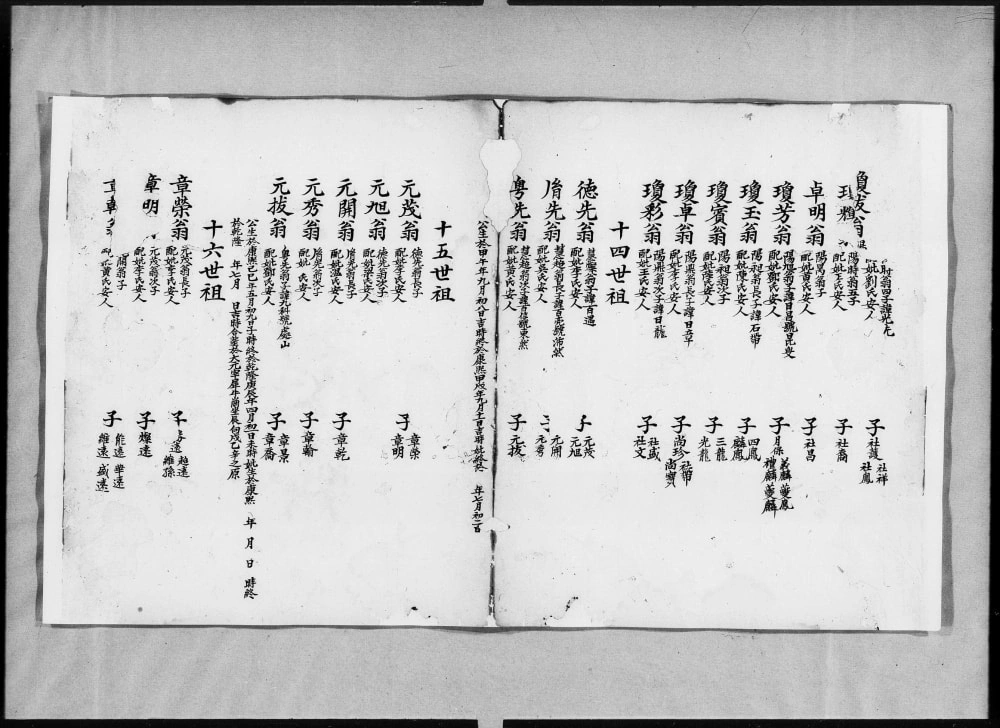 翁
時翁四子諱光左
妣劉氏安人
子 社護 社祥 社鳳
陽時翁五子
配妣李氏安人
子 社喬
卓明翁
陽萬翁子
配妣黄氏安人
子 社昌
瓊芳翁
陽旭翁子諱日昌號昆叟
配妣鄭氏安人
子 月保 義麟 蘷鳳 禮麟 蘷麟
瓊玉翁
陽昶翁長子諱石帶
配妣陳氏安人
子 四鳳 麟鳳
瓊賓翁
陽昶翁次子
配妣陳氏安人
子 三龍 光龍
瓊卓翁
陽鼎翁長子諱日章
配妣李氏安人
子 尚珍 社帶 尚寶
瓊彩翁
陽鼎翁次子諱日龍
配妣王氏安人
子 社盛 社文
十四世祖
德先翁
慧燦翁子諱百遇
配妣李氏安人
子 元茂 元旭
慧超翁長子諱百意號沛然
配妣吳氏安人
子 元開 元秀
粤先翁
慧超翁次子諱百信號東然
配妣黄氏安人
子 元拔
公生於甲午年九月初八日吉時終於康熙甲戌年九月十一日吉時妣終於 年七月初二日
十五世祖
元茂翁
德先翁長子
配妣李氏安人
子 章榮 章明
元旭翁
德先翁次子
配妣梁氏安人
元開翁
先翁長子
配妣溫氏安人
子 章乾
元秀翁
先翁次子
配妣 氏安人
子 章翰
元拔翁
粤先翁子諱九科號處山
配妣鄭氏安人
子 章景 章喬
公生於康熙己巳年五月初九日子時終於乾隆庚辰年四月初一日未時妣生於康熙 年 月 日 時終
於乾隆 年七月 日吉時合葬於大元寧犀牛崗坐辰向戌乙辛之原
十六世祖
章榮翁
元茂翁長子
配妣李氏安人
子 遠 超遠 維孫
章明
元茂翁次子
配妣李氏安人
子 燦遠
開翁子
黄氏安人
子 能遠 華遠 維遠 盛遠